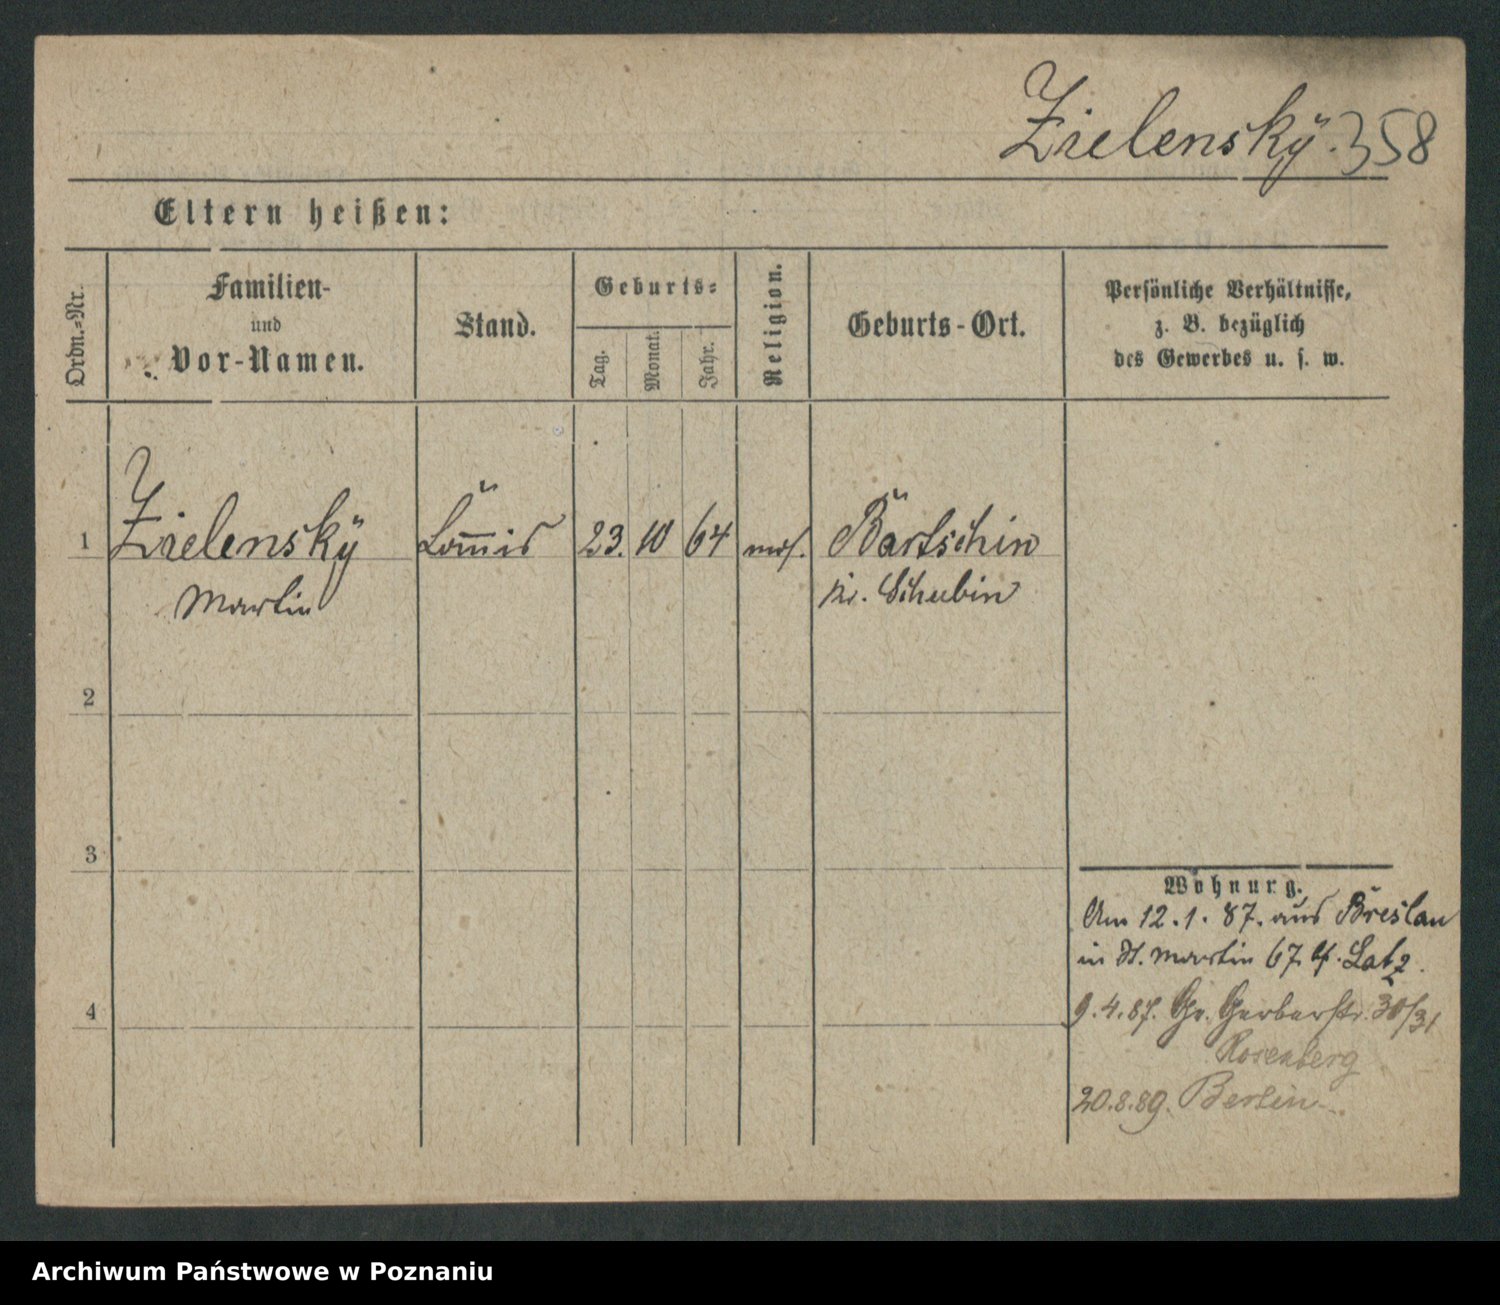 Zielensky. 358
Eltern heißen:
Ordn.=Nr.
Familien-
und
Vor-Namen.
Stand.
Geburts=
Tag.
Monat.
Jahr.
Religion.
Geburts-Ort.
Persönliche Verhältnisse,
z. B. bezüglich
des Gewerbes u. s. w.
1 Zielensky Com̅is 23. 10 64 mos. Bartschin
Martin Kr. Schubin
2
3
Wohnung.
Am 12.1.87. aus Breslau
in St. Martin 67 Latz.
4
9.4.87. Gr. Gerberstr. 30/31
Rosenberg
20.8.89. Berlin
Archiwum Państwowe w Poznaniu